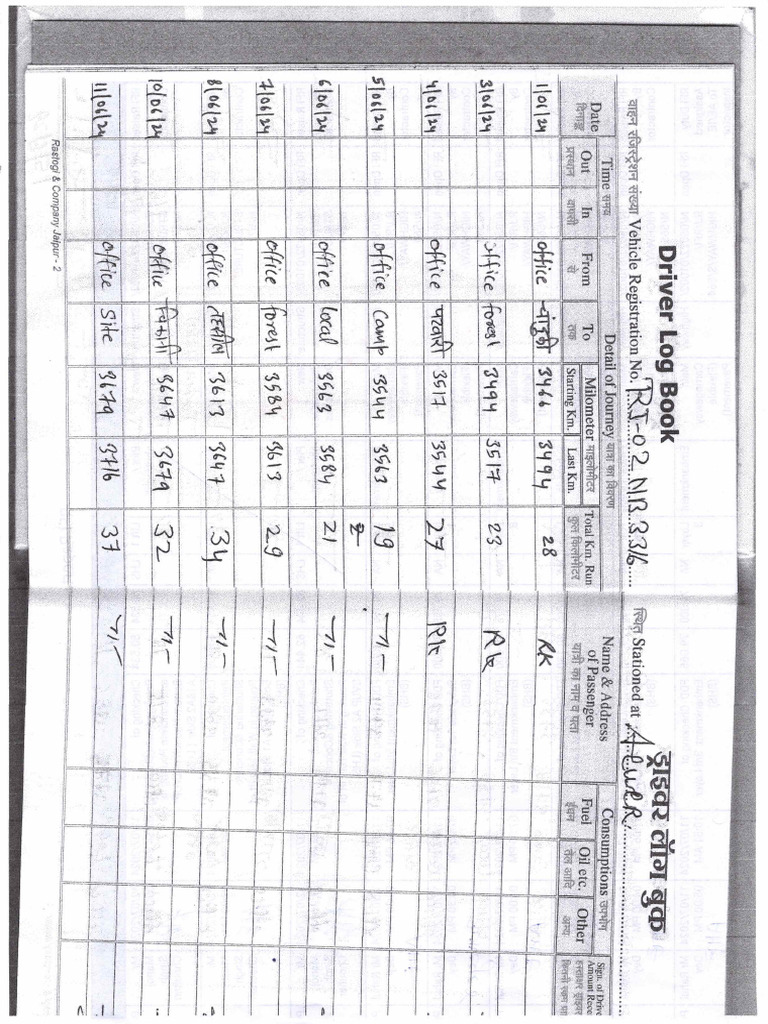 Driver Log Book ड्राइवर लॉग बुक
वाहन रजिस्ट्रेशन संख्या Vehicle Registration No. RJ-02 NB 3316 स्थित Stationed at ALWER
Date दिनाङ्क Time समय Detail of Journey यात्रा का विवरण Name & Address of Passenger यात्री का नाम व पता Consumptions उपभोग Sign. of Drive Amount Rece
Out प्रस्थान In वापसी From से To तक Milometer माइलोमीटर Total Km. Run कुल किलोमीटर Fuel ईंधन Oil etc. तेल आदि Other अन्य
Starting Km. Last Km.
1/06/24 office 3466 3494 28 RK
3/06/24 office forest 3494 3517 23 RK
4/06/24 office पटवारी 3517 3544 27 RK
5/06/24 office Camp 3544 3563 19 -11-
6/06/24 office local 3563 3584 21 -11-
7/06/24 office forest 3584 3613 29 -11-
8/06/24 office तहसील 3613 3647 34 -11-
10/06/24 office 3647 3679 32 -11-
11/06/24 office Site 3679 3716 37 -11-
Rastogi & Company Jaipur - 2